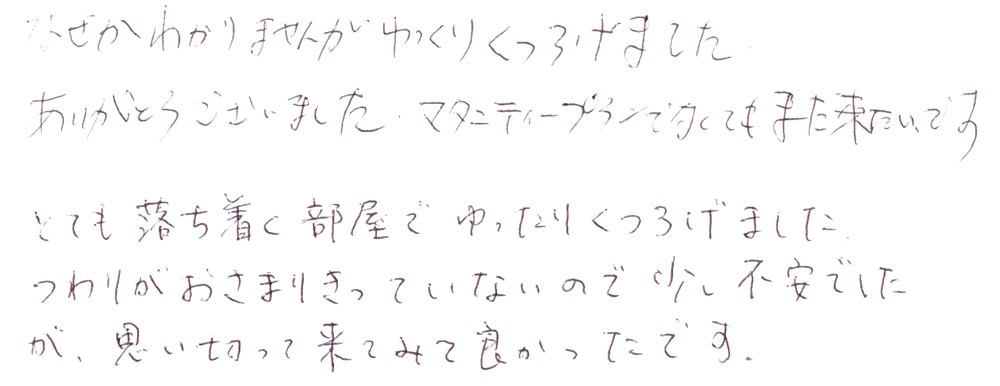 なぜかわかりませんがゆっくりくつろげました
ありがとうございました。マタニティープランでなくてもまた来たいです
とても落ち着く部屋でゆったりくつろげました。
つわりがおさまりきっていないので少し不安でした
が、思い切って来てみて良かったです。